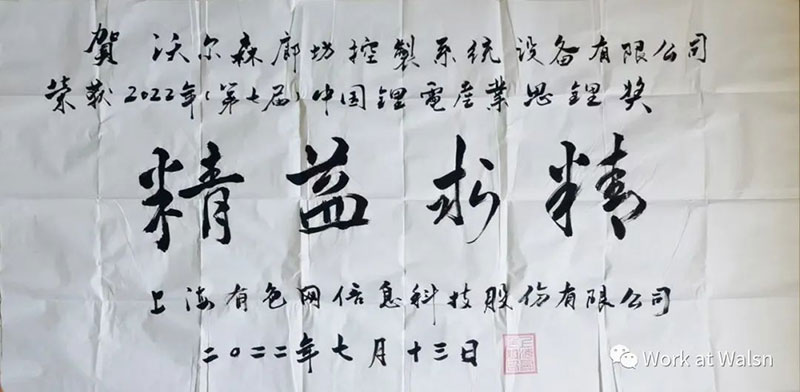 賀 沃尔森廊坊控製系统设备有限公司
荣获2022年(第七届)中国锂電産業思锂奖
精益求精
上海有色网信息科技股份有限公司
二〇二二年七月十三日
Work at Walsn